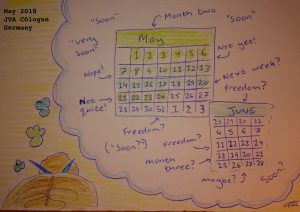 May 2018
JVA Cologne
Germany
"Soon"
Month two
"Soon"
"Very
soon"
May
Not yet!
1 2 3 4 5 6
Nope!
7 8 9 10 11 12 13
Next week?
14 15 16 17 18 19 20
Freedom?
Not
quite!
21 22 23 24 25 26 27
28 29 30 31 1 2 3
JUNE
28 29 30 31
4 5 6 7
11 12 13 14
18 19 20 21
25 26 27 28
Freedom?
("Soon"?)
Freedom?
month
three?
maybe?
Soon?